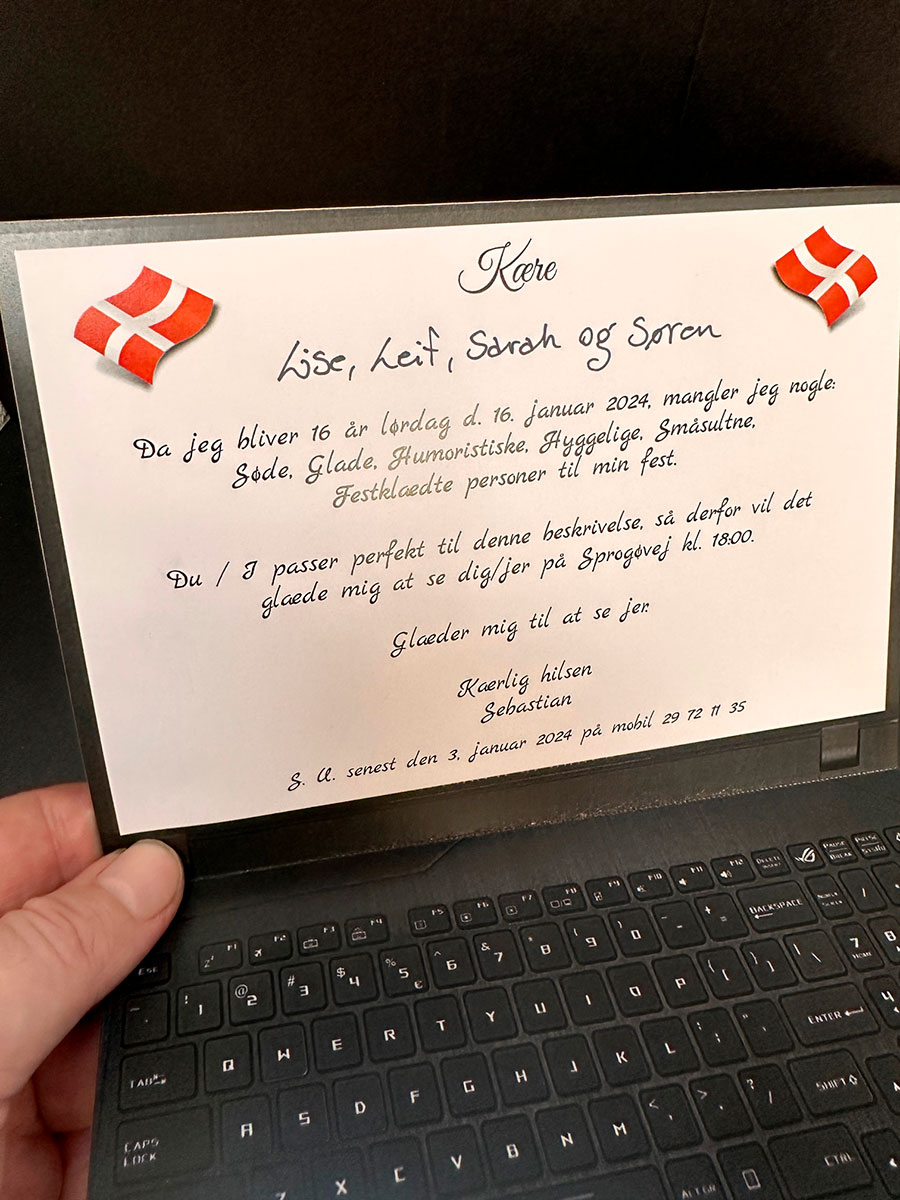 Kære
Lise, Leif, Sarah og Søren
Da jeg bliver 16 år lørdag d. 16. januar 2024, mangler jeg nogle:
Søde, Glade, Humoristiske, Hyggelige, Småsultne,
Festklædte personer til min fest.
Du / I passer perfekt til denne beskrivelse, så derfor vil det
glæde mig at se dig/jer på Sprogøvej kl. 18:00.
Glæder mig til at se jer.
Kærlig hilsen
Sebastian
S. U. senest den 3. januar 2024 på mobil 29 72 11 35
ESC F1 F2 F3 F4 F5 F6 F7 F8 F9 F10 F11 F12 DELETE INSERT PAUSE BREAK
! 1 @ 2 # 3 $ 4 % 5 € ^ 6 & 7 * 8 ( 9 ) 0 _ - + = BACKSPACE /
TAB Q W E R T Y U I O P { [ } ] | \ 7 8
CAPS LOCK A S D F G H J K L : ; " ' ENTER 4
Z X C V B N M < , > . ? / SHIFT
ALTGR CTRL